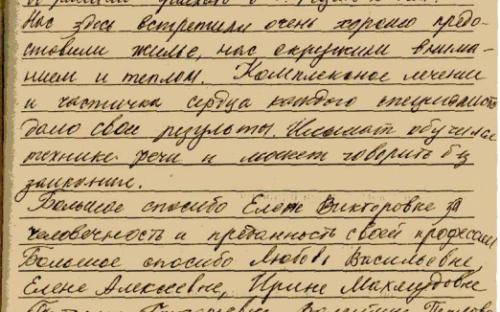 Нас здесь встретили очень хорошо предо-
ставили жилье, нас окружили внима-
нием и теплом. Комплексное лечение
и частичка сердца каждого специалиста
дало свои результаты. обучился
технике речи и может говорить без
заикания.
Большое спасибо Елене Викторовне за
человечность и преданность своей профессии
Большое спасибо Любови Васильевне
Елене Алексеевне, Ирине Махмудовне